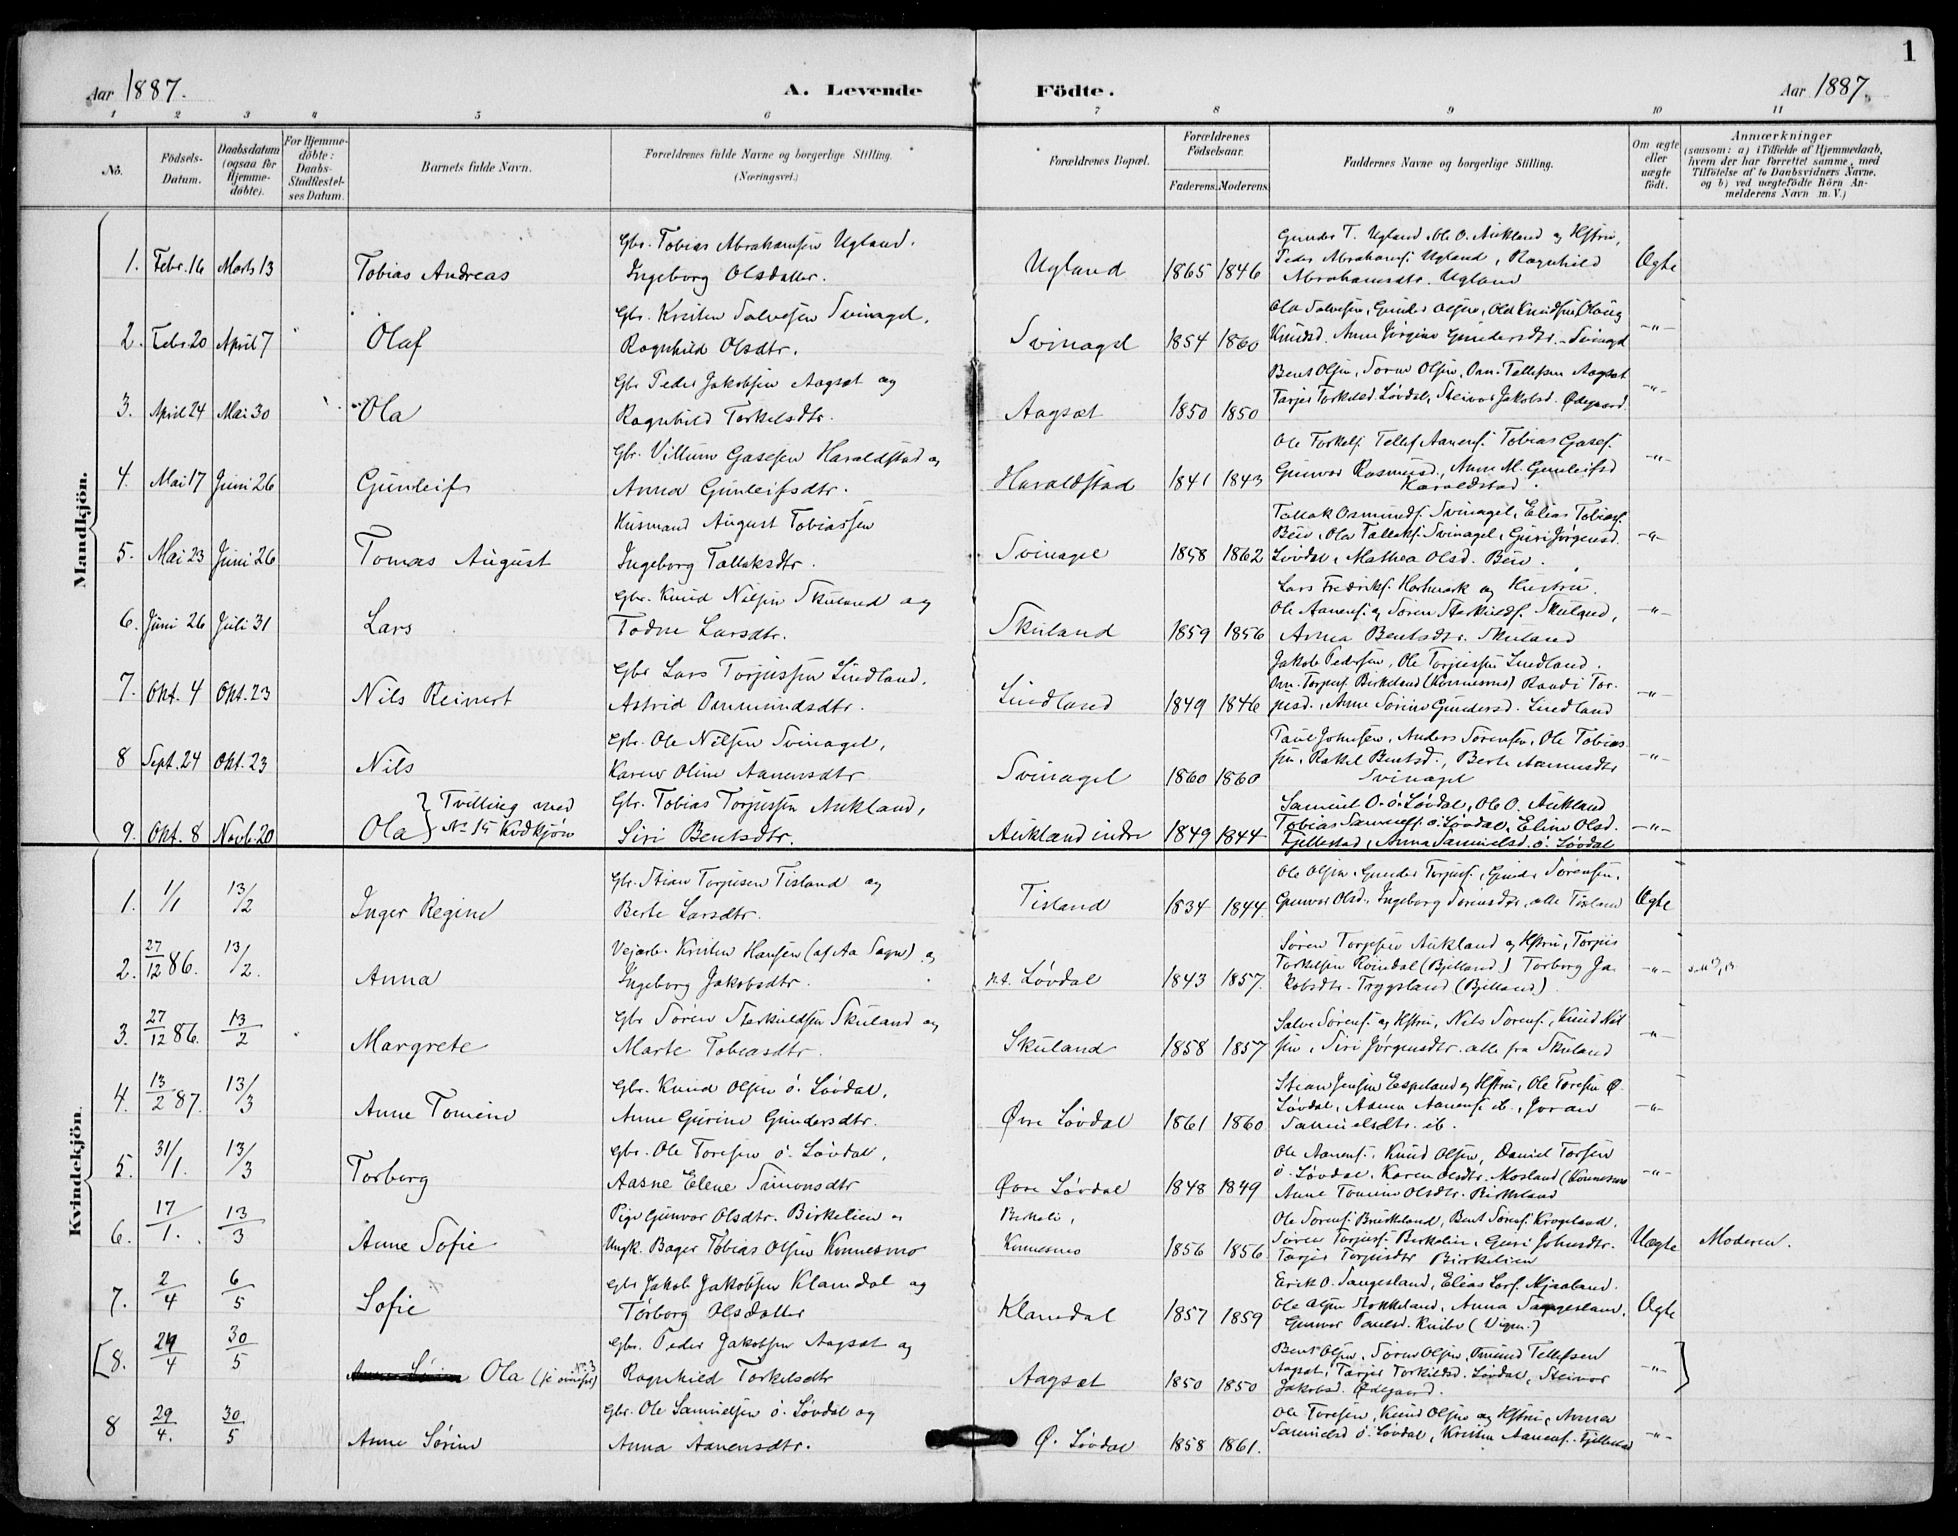 1
Aar 1887.
A. Levende Födte.
Aar 1887.
1 2 3 4 5 6 7 8 9 10 11
No.
Födsels-Datum.
Daabsdatum (ogsaa för Hjemme-döbte).
For Hjemme-döbte: Daabs-Stadfæstel-ses Datum.
Barnets fulde Navn.
Forældrenes fulde Navne og borgerlige Stilling. (Næringsvei.)
Forældrenes Bopæl.
Forældrenes Födselsaar.
Faderens. Moderens.
Faddernes Navne og borgerlige Stilling.
Om ægte eller uægte födt.
Anmærkninger (saasom: a) i Tilfælde af Hjemmedaab, hvem der har forrettet samme, med Tilföielse af to Daabsvidners Navne, og b) ved uægtefödte Börn Anmelderens Navn m. V.)
Mandkjön.
Gbr. Tobias Abrahamsen Ugland. Gunder T. Ugland, Ole O. Aukland og Hstru,
1. Febr. 16 Marts 13 Tobias Andreas Ingeborg Olsdatter. Ugland 1865 1846 Peder Abrahams. Ugland, Ragnhild Abrahamsdtr. Ugland Ægte
Gbr. Kristen Salvesen Svinagel, Ola Salvesen, Gunder Olsen, Ole Knudsen, Olaug
2. Febr. 20 April 7 Olaf Ragnhild Olsdtr. Svinagel 1854 1860 Knudsd. Anne Jørgine Gundersdtr. Svinagel -"-
Gbr Peder Jakobsen Aagsæt og Bent Olsen, Søren Olsen, Om. Tellefsen Aagsæt
3. April 24 Mai 30 Ola Ragnhild Torkelsdtr. Aagsæt 1850 1850 Tarjer Torkilsd. Løvdal, Steivor Jakobsd. Ødegaard. -"-
Gbr. Villum Gasesen Haraldstad og Ole Torkels. Tellef Aanens. Tobias Gases.
4. Mai 17 Juni 26 Gunleif Anna Gunleifsdtr. Haraldstad 1841 1843 Gunvor Rasmusd., Anne M. Gunleifsd Haraldstad. -"-
Husmand August Tobiassen Tallak Osmunds. Svinagel, Elias Tobias.
5. Mai 23 Juni 26 Tomas August Ingeborg Tallaksdtr. Svinagel 1858 1862 Beiv, Ola Tallaks. Svinagel, Guri Jørgensd. Løvdal, Mathea Olsd. Beiv. -"-
Gbr. Knud Nilsen Skuland og Lars Fredriks. Hortmark og Hustru.
6. Juni 26 Juli 31 Lars Todne Larsdtr. Skuland 1859 1856 Ole Aanens. og Søren Sterkilds. Skuland, Anna Bentsdtr. Skuland -"-
Gbr Lars Torjussen Lindland. Jakob Pedersen, Ole Torjussen Lindland.
7. Okt. 4 Okt. 23 Nils Reinert Astrid Ommundsdtr. Lindland 1849 1846 Om. Torjus. Birkeland (Konnesmo) Randi Torjusd., Anne Sørine Gundersd. Lindland -"-
Gbr. Ole Nilsen Svinagel, Paul Johnsen, Anders Sørensen, Ole Tobias-
8 Sept. 24 Okt. 23 Nils Karen Oline Aanensdtr Svinagel 1860 1860 sen, Rakel Bentsd., Berte Aanensdtr Svinagel -"-
Tvilling med No 15 Kvdkjøn Gbr. Tobias Torjussen Aukland, Samuel O. ö. Løvdal, Ole O. Aukland
9. Okt. 8 Novb. 20 Ola Siri Bentsdtr. Aukland indre 1849 1844 Tobias Samuels. ö. Løvdal, Eline Olsd. Fjellestad, Anna Samuelsd. ö. Løvdal -"-
Kvindekjön.
Gbr. Stian Torjusen Tisland og Ole Olsen, Gunder Torjus., Gunder Sørensen,
1. 1/1 13/2 Inger Regine Berte Larsdtr. Tisland 1834 1844 Gunvor Olsd., Ingeborg Sørensdtr, alle Tisland Ægte
Vejarb. Kristen Hansen (af Aa Sogn) og Søren Torjesen Aukland og Hstru, Torjus
2. 27/12 86. 13/2. Anna Ingeborg Jakobsdtr. p.t. Løvdal 1843 1857. Torkelsen Roindal (Bjelland) Torborg Jakobsdtr. Trygsland (Bjelland). -"-
Gbr Søren Sterkildsen Skuland og Salve Sørens. og Hstru, Nils Sørens., Knud Nil
3. 27/12 86. 13/2 Margrete Marte Tobiasdtr. Skuland 1858 1857 sen, Siri Jørgensdtr. alle fra Skuland -"-
Gbr. Knud Olsen ö. Løvdal, Stian Jensen Espeland og Hstru, Ole Toresen Ø.
4. 13/2 87. 13/3 Anne Tomine Anne Gurine Gundersdtr. Øvre Løvdal 1861 1860 Løvdal, Adne Aanens. ib., Joran Samuelsdtr. ib. -"-
Gbr. Ole Toresen ö. Løvdal, Ole Aanens. Knud Olsen, Daniel Torsen
5. 31/1. 13/3 Torborg Aasne Elene Simonsdtr Øvre Løvdal 1848 1849 ö. Løvdal. Karen Olsdtr. Mosland (Konnesmo Anne Tomine Olsdtr. Birkeland -"-
Pige Gunvor Olsdtr. Birkelien og Birkeli, Ole Sørens. Birkeland, Bent Sørens. Krogeland.
6. 17/1. 13/3 Anne Sofie Ungk. Bager Tobias Olsen Konnesmo Konnesmo 1856 1856 Søren Torjus. Birkelien, Guri Johnsdtr. Tarjer Torjusdtr Birkelien Uægte Moderen.
Gbr Jakob Jakobsen Klamdal og Erik O. Saugesland, Elias Lars. Mjaaland.
7. 2/4 6/5 Sofie Torborg Olsdatter Klamdal 1857 1859 Ole Olsen Stokkeland, Anna Saugesland, Gunvor Paulsd. Knibe (Vigm.) Ægte
Gbr. Peder Jakobsen Aagsæt og Bent Olsen, Søren Olsen, Omund Tellefsen
[8. 24/4 30/5 Ola (se ovenfor No. 3) Ragnhild Torkelsdtr Aagsæt 1850 1850 Aagsæt, Tarjer Torkildsd. Løvdal, Steivor Jakobsd. Ødegaard. -"- ]
Gbr. Ole Samuelsen ö. Løvdal og Ole Toresen, Knud Olsen og Hstru, Anna
8 29/4. 30/5 Anne Sørine Anna Aanensdtr. Ø. Løvdal 1858 1861. Samuelsd ö. Løvdal, Kristen Aanens. Fjellestad -"-